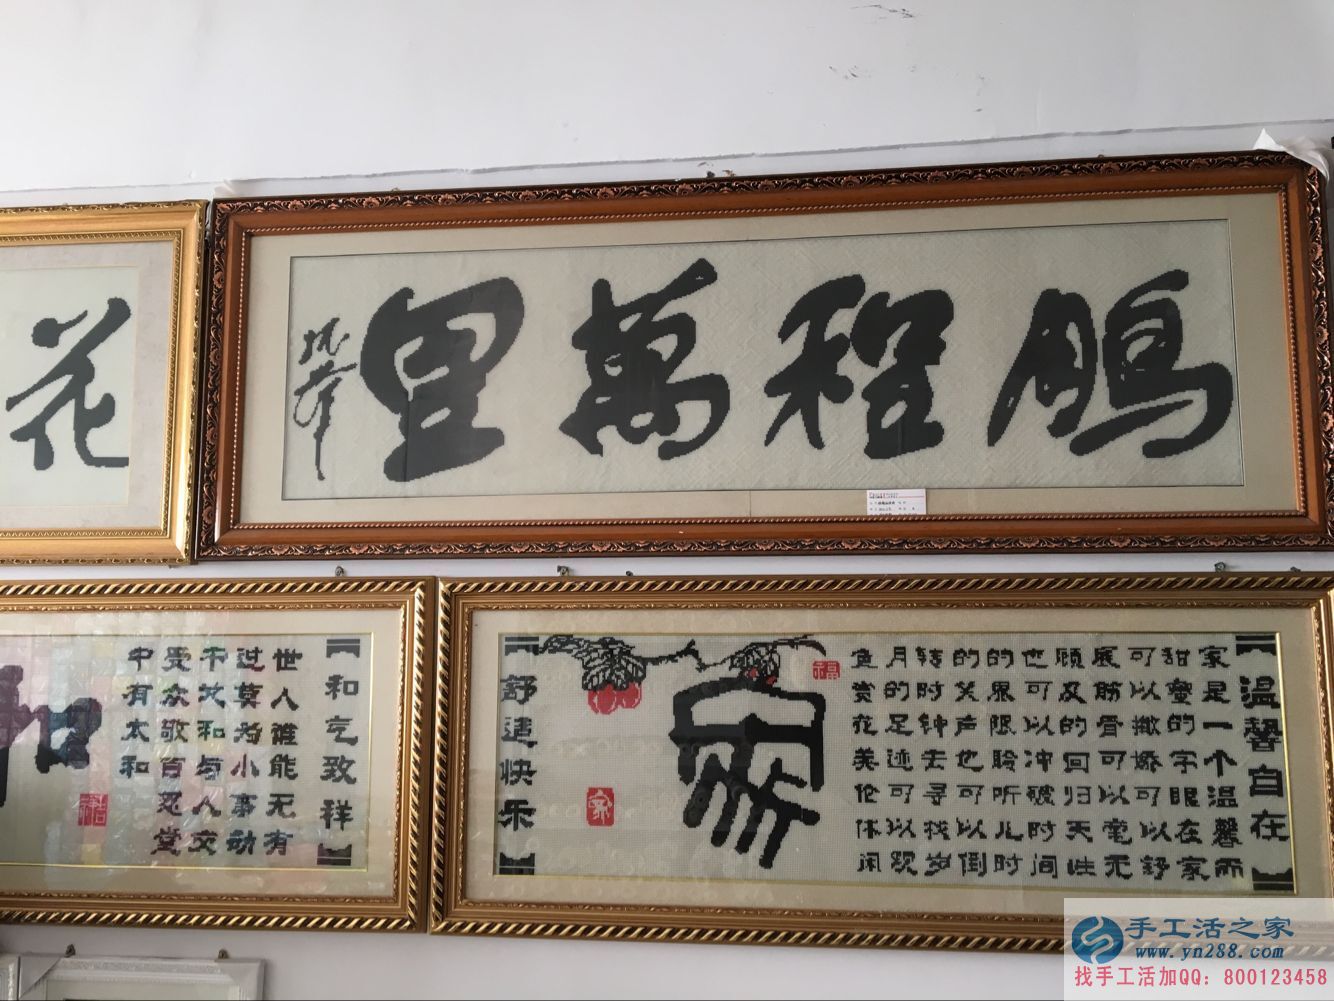 鹏程萬里
花
和气致祥
世人谁能无有
过莫为小事动
干戈和与人交
受众敬百忍堂
中有太和
吉祥
和
温馨自在
家是一个温馨而
甜蜜的字眼在家
可以撒娇可以舒
展筋骨可以毫无
顾及的回归天性
也可以冲破时间
的界限聆听儿时
的笑声也可以倒
转时钟去寻找岁
月的足迹可以观
鱼赏花美伦休闲
福
家
家
舒适快乐
手工活之家
www.yn288.com
找手工活加QQ：800123458